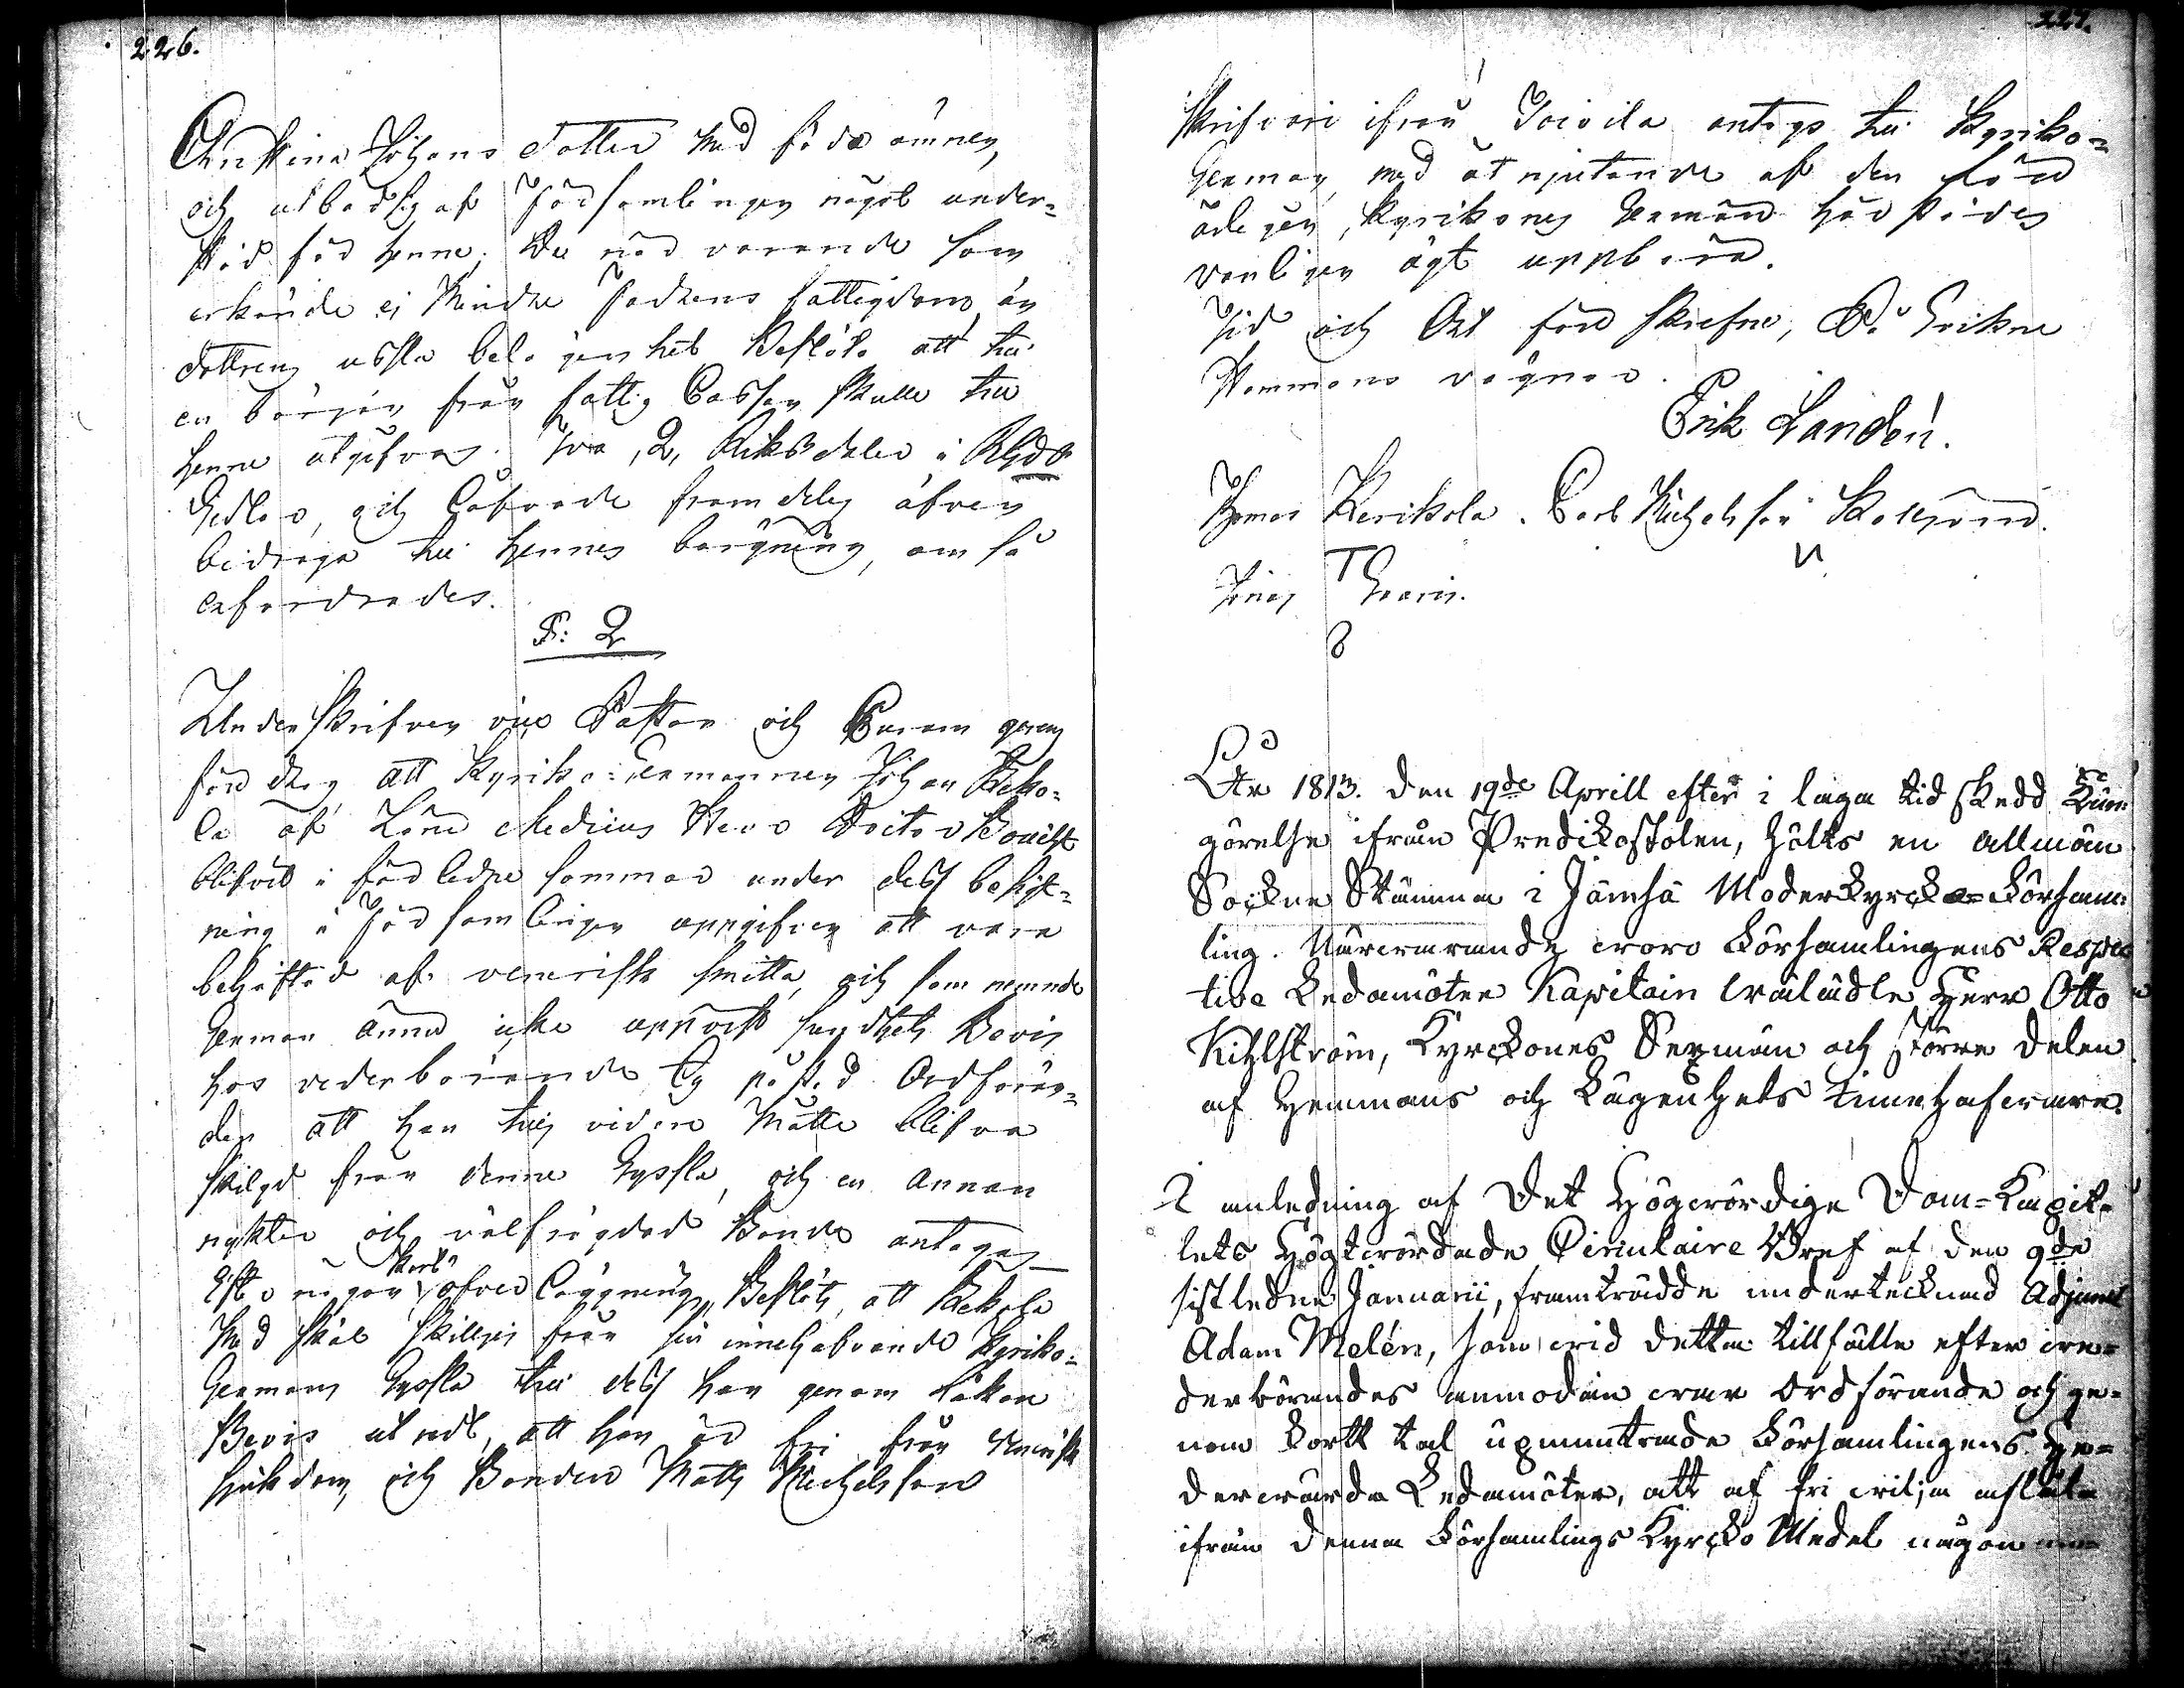 226.
Christina Johans dotter med föda ämnen,
och utbad sig af Församlingen något under-
stöd för henne. De när varande som
erkände ej mindre Fadrens fattigdom än
dottrens usla belägenhet beslöto att till
en början från fattig Cassan skulle till
henne utgifvas. Två, 2, Riksdaler i RGds
Sedlar, och lofvade framdeles äfven
bidraga till hennes bärgning, om så
erfordrades.
§: 2
Underskrifven vice Pastor och Curam gerens
föredrog att Kyrko-Sexmannen Johan Keko-
la af Läns Medicus Herr Doctor Bonsdorff
blifvit i förledne sommar under dess besigt-
ning i Församlingen uppgifven att vara
behäftad af venerisk smitta, och som nemnde
Sexman ännu icke uppvist sundhets Bevis
hos vederbörande Ty påstod Ordföran-
den att han tills vidare måtte blifva
skilgd från denna Syssla, och en annan
nykter och välfrägdad Bonde antagas
Efter någon kort öfver läggning, Beslöts, att Kekola
Med skäl skilljes från sin innehafvande Kyrko-
Sexmans Syssla till dess han genom läkare
Bevis utredt, att han är fri från Venerisk
sjukdom, och Bonden Matts Michelsson
227.
Skrifvari ifrån Toivila antogs till Kyrko-
Sexman, med åtnjutande af den lön
årligen, Kyrkones Sexmän härstädes
vanligen ägt uppbära.
Tid och Ort före skrefne, På Sockne
Stämmans vägnar.
Erik Landén.
Thomas Kerikola. Carl Michelsson Skottsund.
Jöns Thoris.
År 1813. den 19de Aprill efter i laga tid skedd Kun-
görelse ifrån Predikostolen, hölts en allmän
Sockne Stämma i Jämsä Moderkyrcko-Försam-
ling. Närvarande voro Församlingens Respec
tive Ledamöter Kapitain Välädle Herr Otto
Kihlström, Kyrckones Sexmän och större delen
af Hemmans och Lägenhets innehafvare.
I anledning af Det Högvördige Dom-Kapit-
lets Högtvördade Circulaire Bref af den 9de
sistledne Januarii, framträdde undertecknad Adjunct
Adam Melén, som vid detta tillfälle efter ve-
derbörandes anmodan var Ordförande och ge-
nom kortt tal upmuntrade Församlingens He-
dervärda Ledamöter, att af fri vilja aflåta
ifrån denna Församlings Kyrcko Medel någon